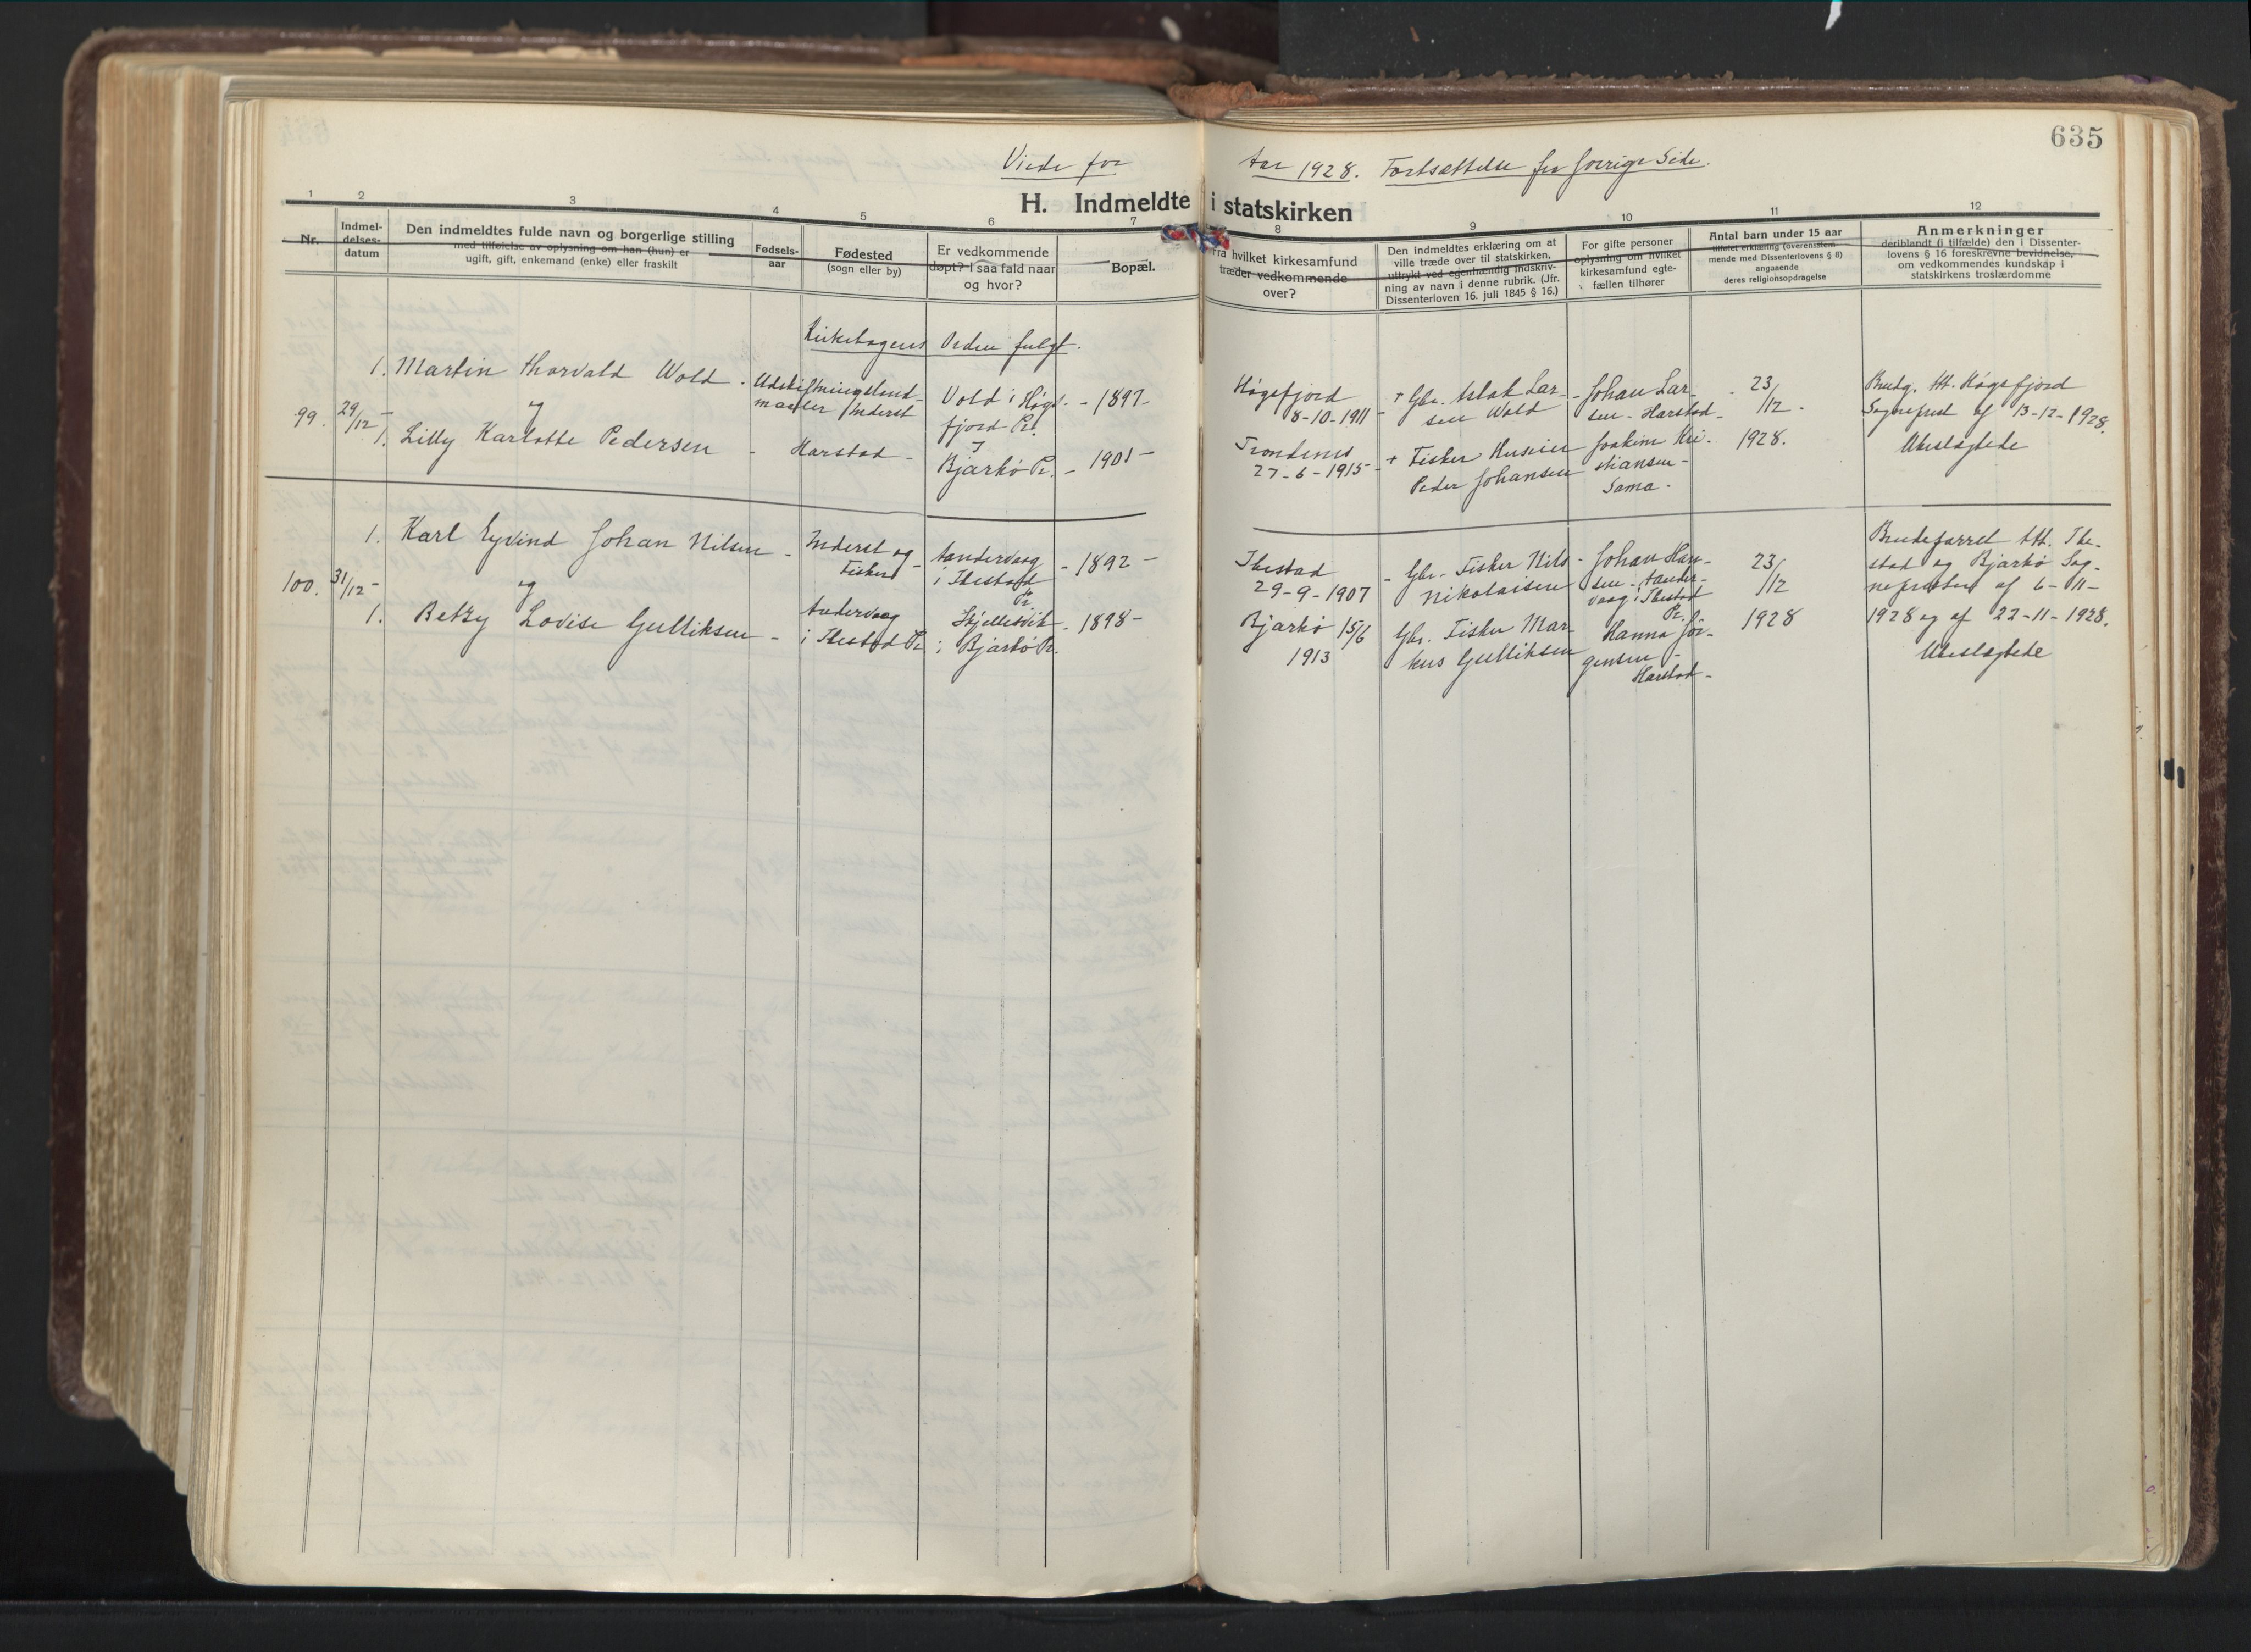 635
Viede for Aar 1928. Fortsættelse fra forrige Side.
H. Indmeldte i statskirken
1 2 3 4 5 6 7 8 9 10 11 12
Nr.
Indmel-
delses-
datum
Den indmeldtes fulde navn og borgerlige stilling
med tilføielse av oplysning om han (hun) er
ugift, gift, enkemand (enke) eller fraskilt
Fødsels-
aar
Fødested
(sogn eller by)
Er vedkommende
døpt? I saa fald naar
og hvor?
Bopæl.
Fra hvilket kirkesamfund
træder vedkommende
over?
Den indmeldtes erklæring om at
ville træde over til statskirken,
uttrykt ved egenhændig indskriv-
ning av navn i denne rubrik. (Jfr.
Dissenterloven 16. juli 1845 § 16.)
For gifte personer
oplysning om hvilket
kirkesamfund egte-
fællen tilhører
Antal barn under 15 aar
tilføiet erklæring (overenstem-
mende med Dissenterlovens § 8)
angaaende
deres religionsopdragelse
Anmerkninger
deriblandt (i tilfælde) den i Dissenter-
lovens § 16 foreskrevne bevidnelse,
om vedkommendes kundskap i
statskirkens troslærdomme
Kirkebogens Orden fulgt.
99. 29/12 -
1. Martin Thorvald Wold -
og
1. Lilly Karlotte Pedersen -
Udskiftningsland-
maaler / Inderst
Harstad -
Vold i Høgs-
fjord Pr.
Bjarkö Pr.
- 1897 -
- 1901 -
Høgsfjord
8-10-1911 -
Trondenes
27-6-1915 -
+ Gbr. Aslak Lar-
sen Wold
+ Fisker Huseier
Peder Johansen
- Johan Lar-
sen - Harstad -
Joakim Kri-
stiansen -
Sama -
23/12 -
1928.
Brudg. Att. Høgsfjord
Sogneprest af 13-12-1928.
Ubeslægtede
100. 31/12 -
1. Karl Eyvind Johan Nilsen -
og
1. Betzy Lovise Gulliksen -
Inderst og
Fisker -
Aandervaag
i Ibestad Pr.
Andervaag
i Ibestad Pr.
Skjellesvik
i Bjarkö Pr.
- 1892 -
- 1898 -
Ibestad
29-9-1907
Bjarkö 15/6
1913
- Gbr. Fisker Nils
Nikolaisen
Gbr. Fisker Mar-
kus Gulliksen
- Johan Han-
sen - Aander-
vaag i Ibestad
Pr.
Hanna Jör-
gensen -
Harstad -
23/12
1928
Brudeparret Att. Ibe-
stad og Bjarkö Sog-
neprester af 6-11-
1928 og af 22-11-1928.
Ubeslægtede